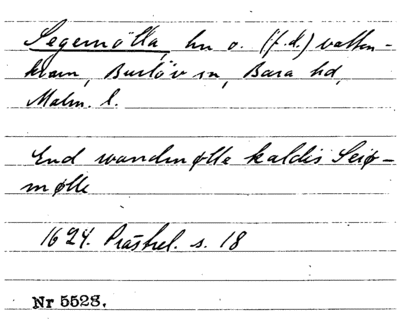 Segemölla, hn o. (f.d.) vatten-
kvarn, Burlöv sn, Bara hd,
Malm. l.
End wandmølle kaldis Seiø-
mølle
1624. Prästrel. s. 18
Nr 5528.